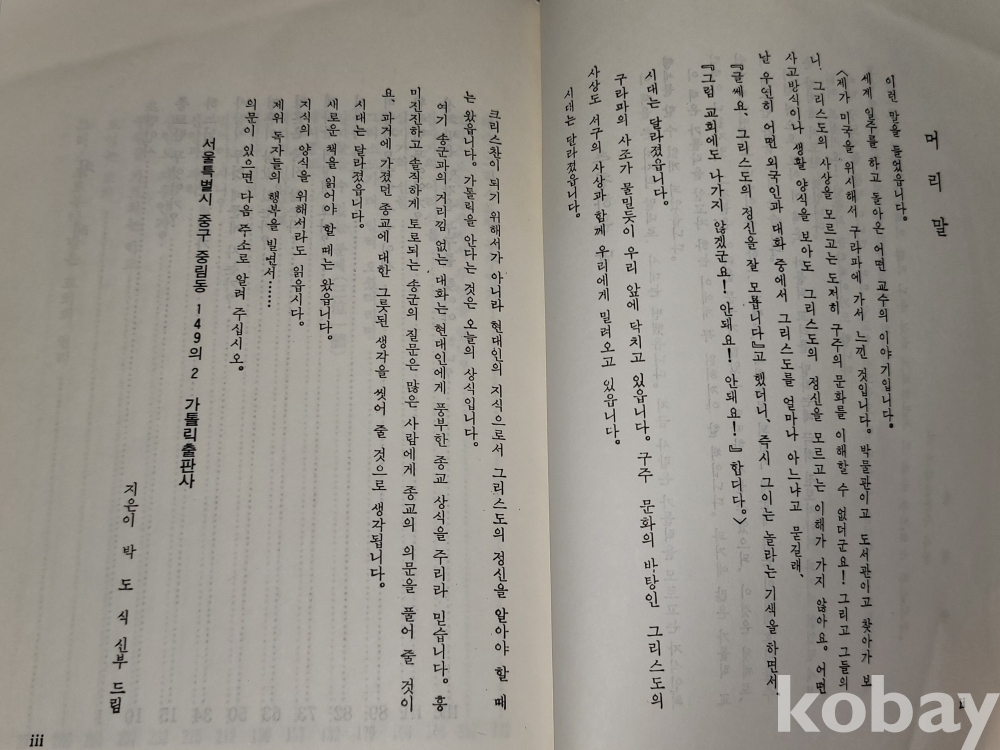 머리말
이런 말을 들었읍니다.
세계 일주를 하고 돌아온 어떤 교수의 이야기입니다.
〈제가 미국을 위시해서 구라파에 가서 느낀 것입니다. 박물관이고 도서관이고 찾아가 보
니, 그리스도의 사상을 모르고는 도저히 구주의 문화를 이해할 수 없더군요! 그리고 그들의
사고방식이나 생활 양식을 보아도 그리스도의 정신을 모르고는 이해가 가지 않아요. 어떤
난 우연히 어떤 외국인과 대화 중에서 그리스도를 얼마나 아느냐고 묻길래,
『글쎄요, 그리스도의 정신을 잘 모릅니다』고 했더니, 즉시 그이는 놀라는 기색을 하면서,
『그럼 교회에도 나가지 않겠군요! 안돼요! 안돼요!』 한디다.〉
시대는 달라졌읍니다.
구라파의 사조가 물밀듯이 우리 앞에 닥치고 있읍니다. 구주 문화의 바탕인 그리스도의
사상도 서구의 사상과 함께 우리에게 밀려오고 있읍니다.
시대는 달라졌읍니다.
크리스챤이 되기 위해서가 아니라 현대인의 지식으로서 그리스도의 정신을 알아야 할 때
는 왔읍니다. 가톨릭을 안다는 것은 오늘의 상식입니다.
여기 송군과의 거리낌 없는 대화는 현대인에게 풍부한 종교 상식을 주리라 믿습니다. 흥
미진진하고 솔직하게 토로되는 송군의 질문은 많은 사람에게 종교의 의문을 풀어 줄 것이
요, 과거에 가졌던 종교에 대한 그릇된 생각을 씻어 줄 것으로 생각됩니다.
시대는 달라졌읍니다.
새로운 책을 읽어야 할 때는 왔읍니다.
지식의 양식을 위해서라도 읽읍시다.
제위 독자들의 행복을 빌면서……
의문이 있으면 다음 주소로 알려 주십시오.
서울특별시 중구 중림동 149의 2 가톨릭출판사
지은이 박도식 신부 드림
iii
kobay